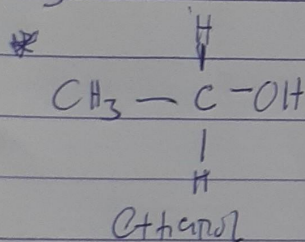 H
CH₃ — C — OH
|
H
Ethanol